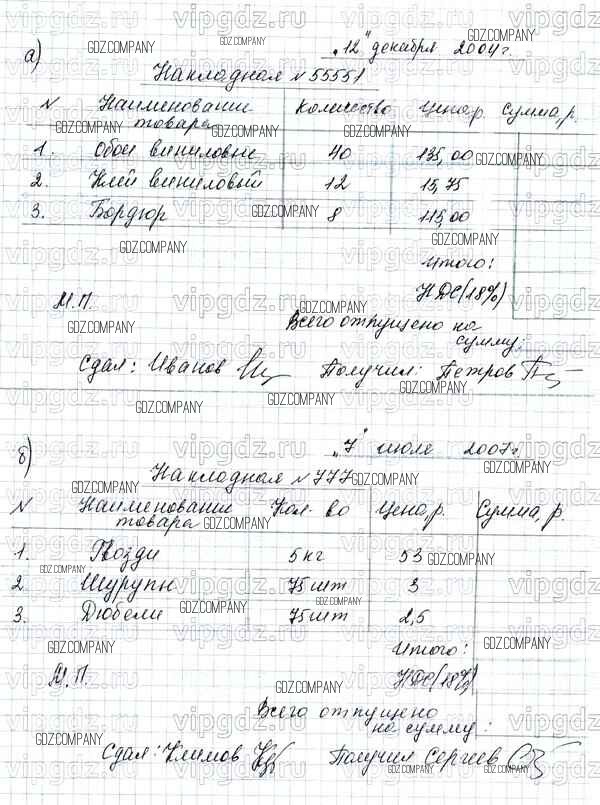 а)
"12" декабря 2004г.
Накладная N 55551
N Наименовани товара Количество Цена, р. Сумма, р.
1. Обои виниловые 40 135,00
2. Клей виниловый 12 15,75
3. Бордюр 8 115,00
Итого:
НДС (18%)
М.П.
Всего отпущено на сумму:
Сдал: Иванов Получил: Петров
б)
"7" июля 2007г.
Накладная N 777
N Наименовани товара Кол-во Цена, р. Сумма, р.
1. Гвозди 5 кг 53
2 Шурупы 75 шт 3
3. Дюбели 75 шт 2,5
Итого:
НДС (18%)
М.П.
Всего отпущено на сумму:
Сдал: Климов Получил Сергеев
vipgdz.ru
GDZ.COMPANY